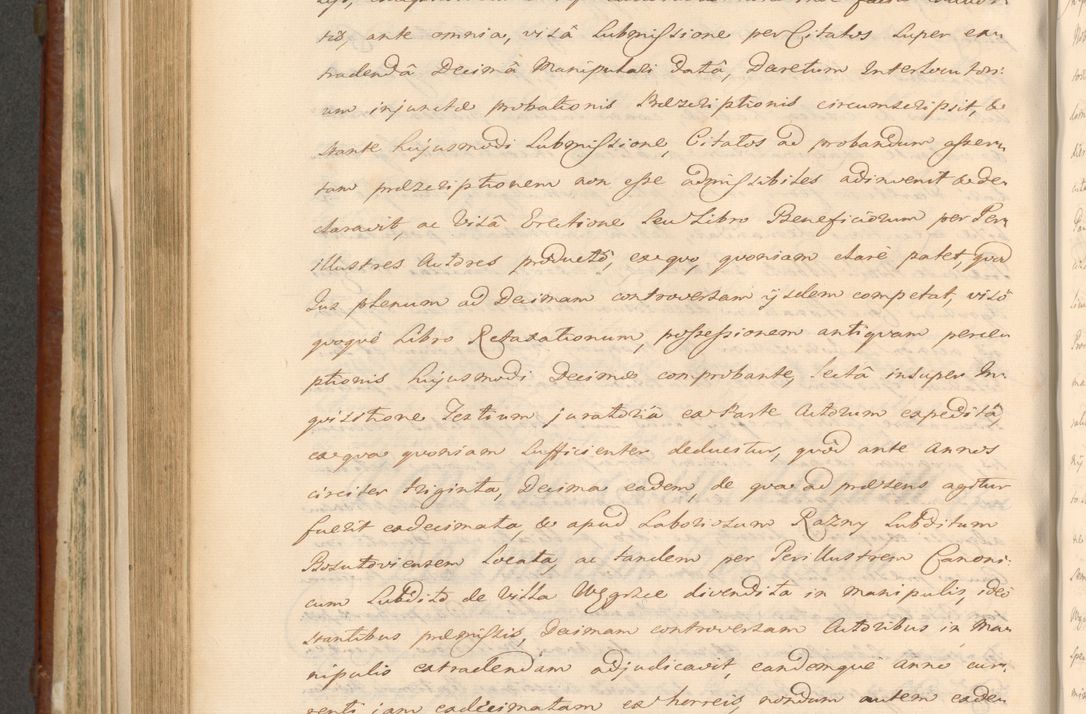 tis, ante omnia, visâ Submissione per Citatos super ex
tradendâ Decimâ Manipulari datâ, Decretum Interlocutori
um injunctæ probationis Præscriptionis circumscripsit, &
stante hujusmodi Submissione, Citatos ad probandum asser
tam præscriptionem non esse admissibiles adinvenit & de
claravit, ac Visâ Erectione seu Libro Beneficiorum per Per
illustres Actores producto, ex quo, quoniam clarè patet, quod
Jus plenum ad Decimam controversam ijsdem competat, viso
quoque Libro Retaxationum, possessionem antiquam perce
ptionis hujusmodi Decimæ comprobante, lectâ insuper In
quisitione Testium juratoriâ ex Parte Actorum expeditâ,
ex qua quoniam sufficienter deducitur, quòd ante Annos
circiter triginta, Decima eadem, de qua ad præsens agitur
fuerit exdecimata, & apud Laboriosum Razny Subditum
Bosutoviensem locata, ac tandem per Perillustrem Canoni
cum Subdito de Villa Węgrzce divendita in manipulis, ideo
stantibus præmissis, Decimam controversam Actoribus in Ma
nipulis extradendam adjudicavit, eandemque anno cur
renti jam exdecimatam ex horreis, nondum autem exdec